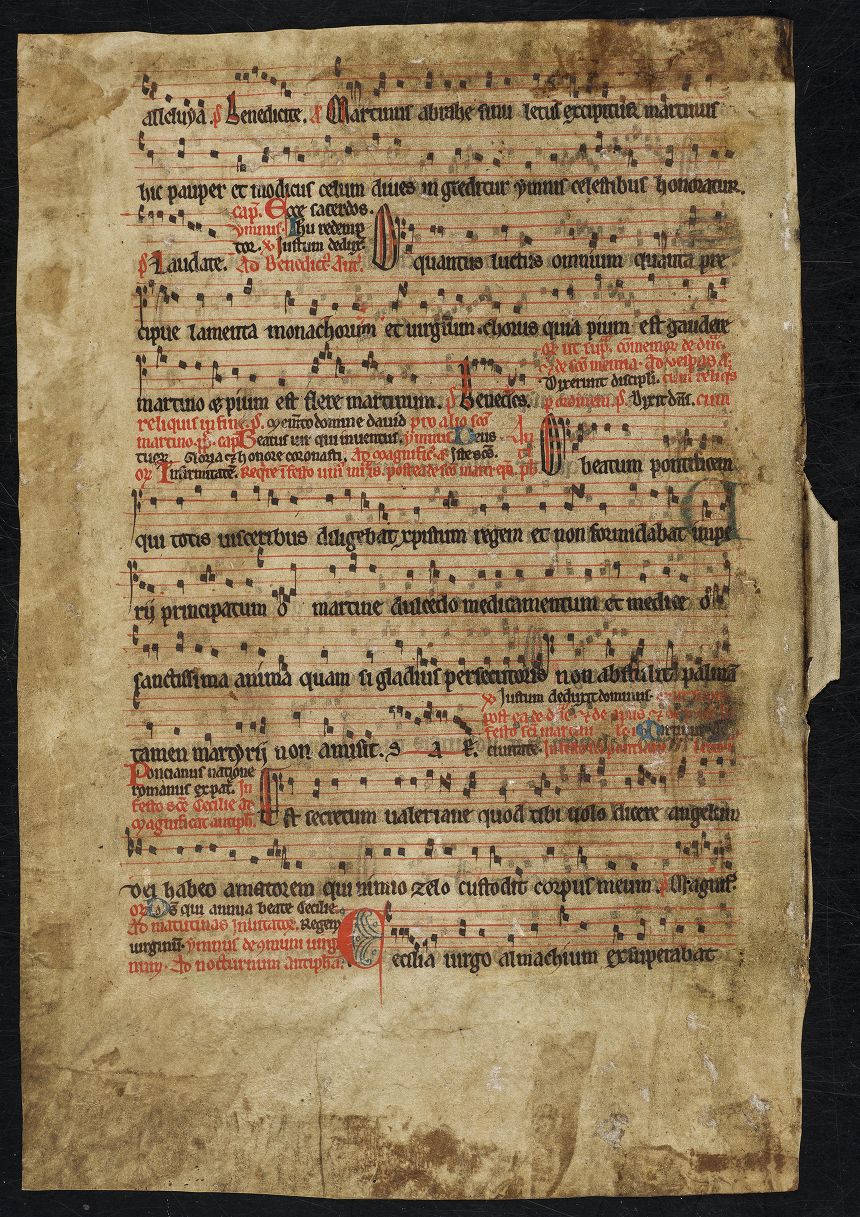 alleluya. p̄ Benedicite. a Martinus abrahe sinu letus excipitur martinus
hic pauper et modicus celum diues ingreditur ymnis celestibus honoratur.
cap̄. Ecce sacerdos.
ymnus. Ihu redemp
tor. v Justum deduxit
p̄ Laudate. Ad Benedict' Ant'. O quantus luctus omnium quanta pre
cipue lamenta monachorum et uirginum chorus quia pium est gaudere
martino et pium est flere martinum. p̄ Benedcs.
Dixerunt discipli. cum reliqs
p̄. Dixit dns. cum
reliquis in fine. p̄. Memto domine dauid pro alio sco
martino. cap̄. Beatus uir qui inuentus. ymnus Deus
tuor. Gloria et honore coronasti. Ad magnific' a Iste scs.
or Infirmitatē.
O beatum pontificem
qui totis uisceribus diligebat xpistum regem et non formidabat impe
rij principatum o martine dulcedo medicamentum et medice o
sanctissima anima quam si gladius persecutoris non abstulit palmā
v Justum deduxit dominus.
tamen martyrij non amisit. S A R.
Poncianus natione
romanus ex pat. In
festo scē Cecilie ad
magnificat antiph.
Est secretum ualeriane quod tibi uolo dicere angelum
dei habeo amatorem qui nimio zelo custodit corpus meum. p̄ Magnif'.
or Ds qui annua beate Cecilie.
Ad matutinas Inuitator. Regem
uirginū. ymnus de
Ad nocturnum antipha.
Cecilia uirgo almachium exsuperabat